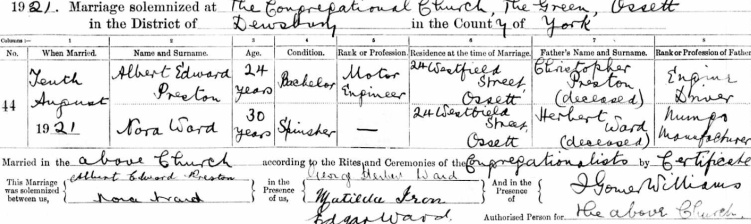 1921. Marriage solemnized at The Congregational Church, The Green, Ossett
in the District of Dewsbury in the County of York
Columns :— 1 2 3 4 5 6 7 8
No. When Married. Name and Surname. Age. Condition. Rank or Profession. Residence at the time of Marriage. Father's Name and Surname. Rank or Profession of Father
44
Tenth
August
1921
Albert Edward
Preston
24
years
Bachelor
Motor
Engineer
24 Westfield
Street,
Ossett
Christopher
Preston
(deceased)
Engine
Driver
Nora Ward
30
years
Spinster
—
24 Westfield
Street,
Ossett
Herbert
Ward
(deceased)
Mungo
Manufacturer
Married in the above Church according to the Rites and Ceremonies of the Congregationalists by Certificate
This Marriage
was solemnized
between us,
Albert Edward Preston
Nora Ward
in the
Presence
of us,
George Herbert Ward
Matilda Iron
Edgar Ward
And in the
Presence
of
J Gomer Williams
Authorised Person for the above Church